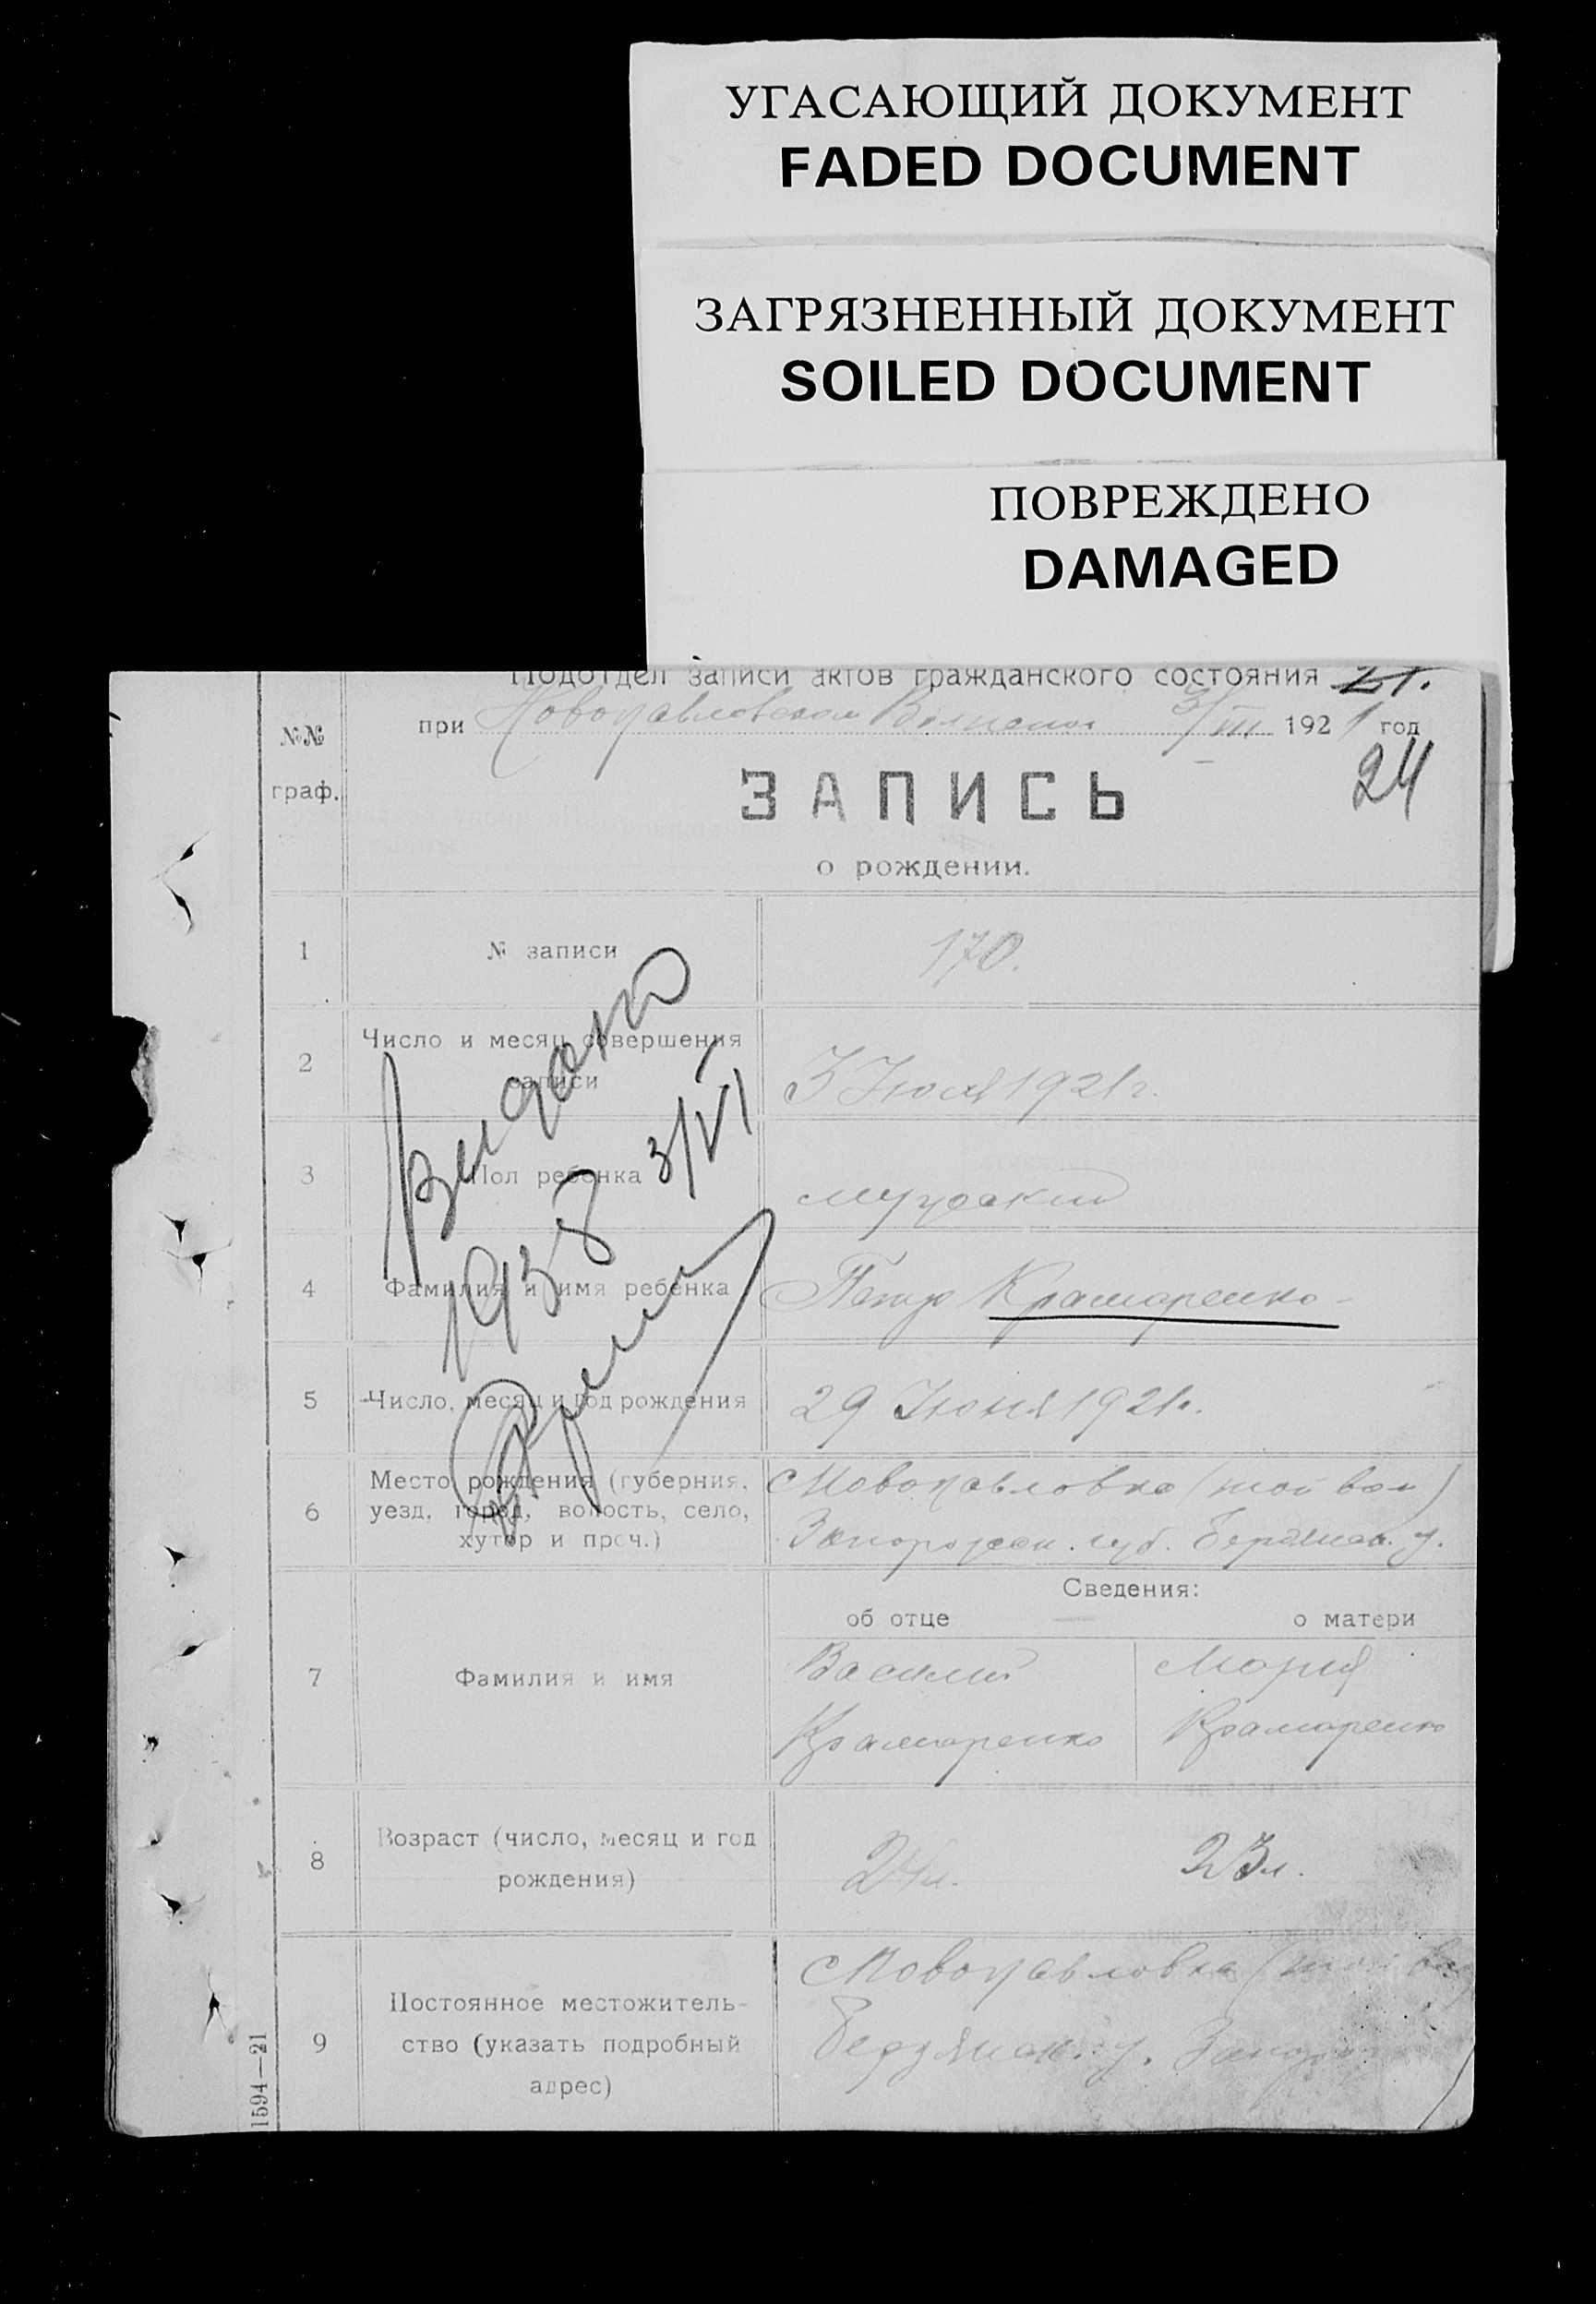 УГАСАЮЩИЙ ДОКУМЕНТ
FADED DOCUMENT
ЗАГРЯЗНЕННЫЙ ДОКУМЕНТ
SOILED DOCUMENT
ПОВРЕЖДЕНО
DAMAGED
Подотдел записи актов гражданского состояния 21.
при Новопавловском 3/VII 1921 год
24
№№
граф.
ЗАПИСЬ
о рождении.
1 № записи 170.
2 Число и месяц совершения
записи 3 Июля 1921 г.
3 Пол ребенка мужский
4 Фамилия и имя ребенка Петр Крамаренко
5 Число, месяц и год рождения 29 Июня 1921 г.
6 Место рождения (губерния,
уезд, город, волость, село,
хутор и проч.)
с Новопавловка (той вол)
Запорожск. губ. Бердянск. у.
Видано
3/VI
1938
Сведения:
об отце о матери
7 Фамилия и имя
Василий Мария
Крамаренко Крамаренко
8 Возраст (число, месяц и год
рождения)
24 л. 23 л.
9 Постоянное местожитель-
ство (указать подробный
адрес)
с Новопавловка (той вол
Бердянск. у. Запор
1594—21